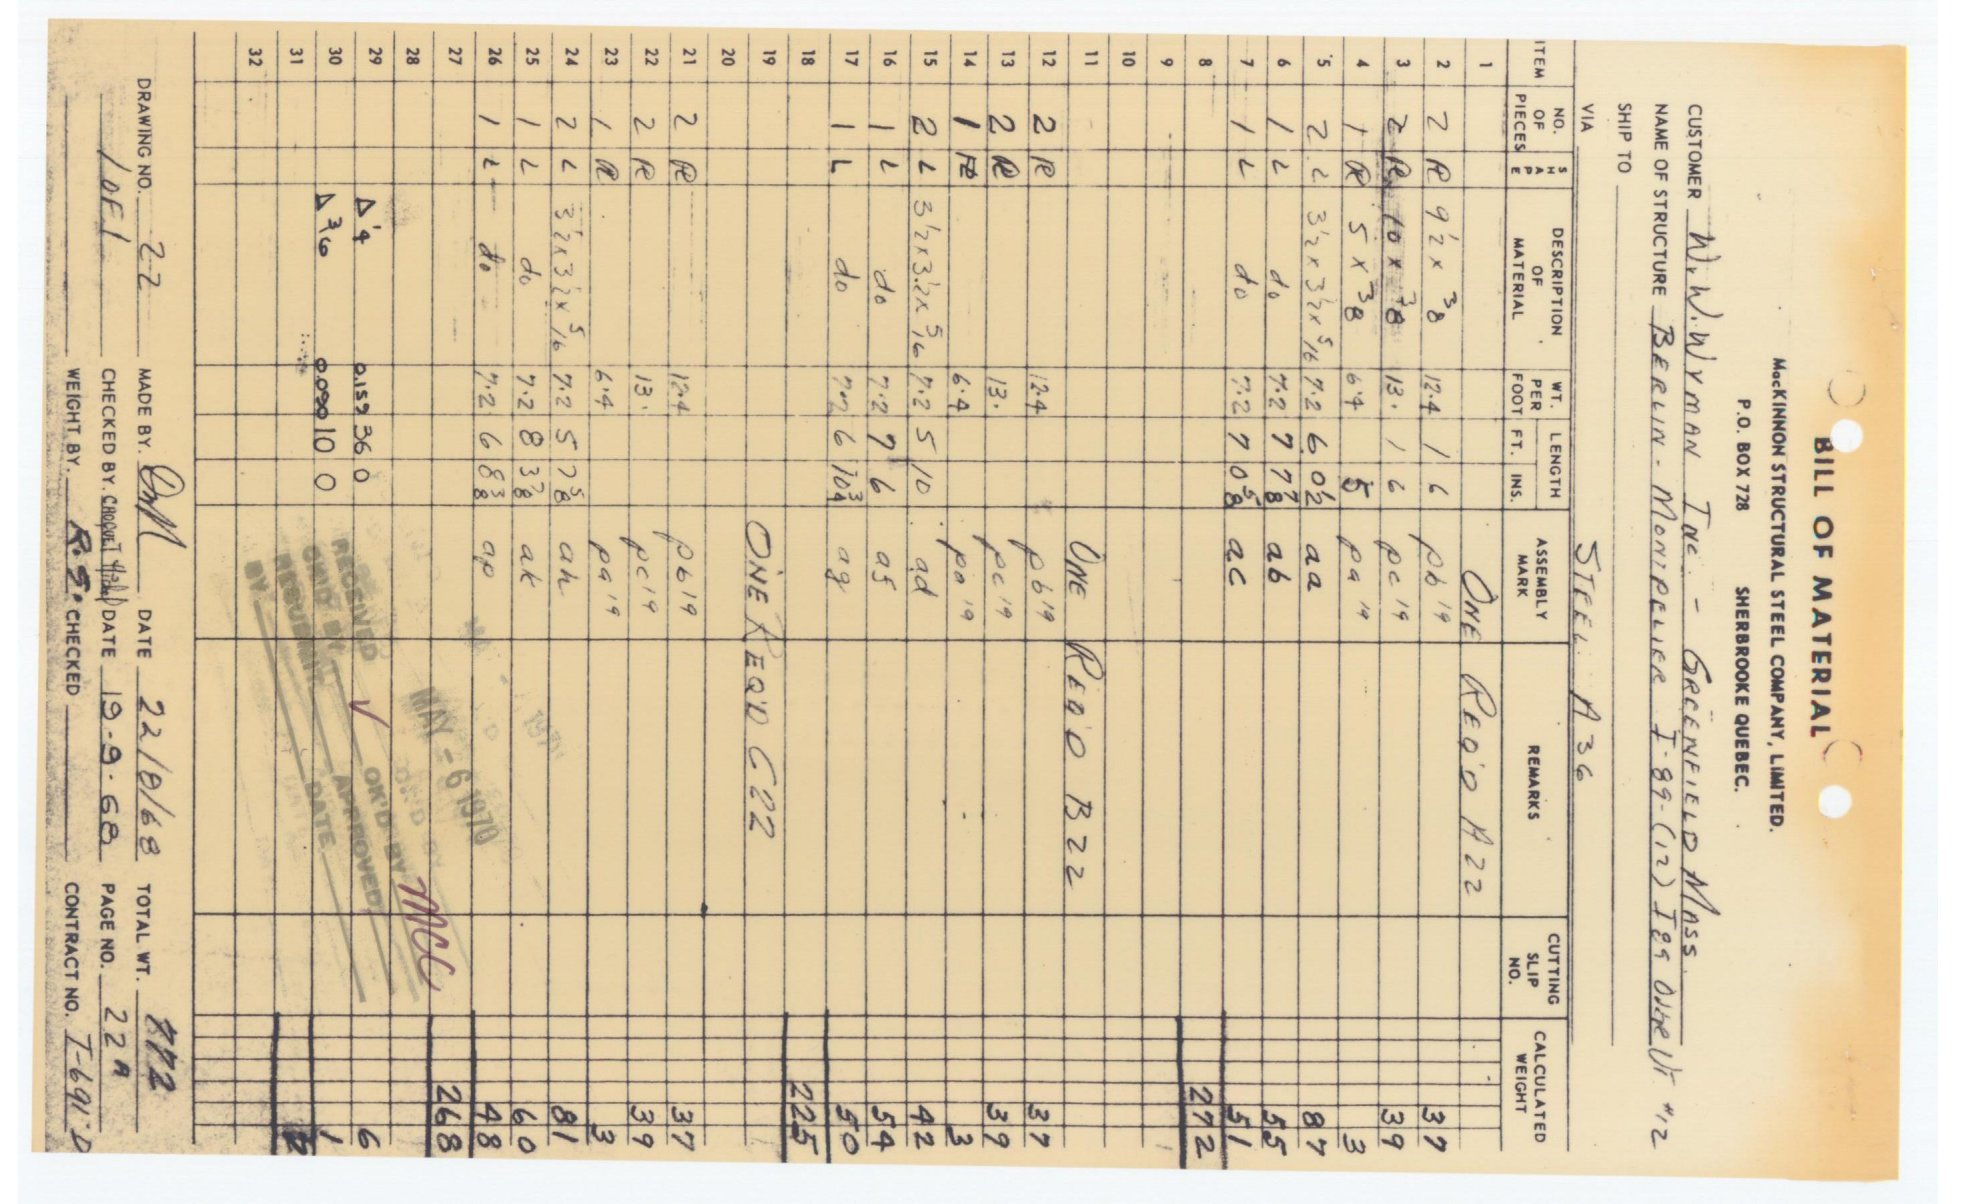 BILL OF MATERIAL
MacKINNON STRUCTURAL STEEL COMPANY, LIMITED.
P.O. BOX 728 SHERBROOKE QUEBEC.
CUSTOMER W.W.WYMAN INC. - GREENFIELD MASS.
NAME OF STRUCTURE BERLIN - MONTPELIER I-89-(12) I89 #12
SHIP TO
VIA STEEL A36
ITEM NO. OF PIECES SHAPE DESCRIPTION OF MATERIAL WT. PER FOOT LENGTH FT. INS. ASSEMBLY MARK REMARKS CUTTING SLIP NO. CALCULATED WEIGHT
1 ONE REQ'D A22
2 2 PL 9 1/2 x 3/8 12.4 1 6 pb 19 37
3 2 PL 10 x 3/8 13. 1 6 pc 19 39
4 1 PL 5 x 3/8 6.4 5 pa 19 3
5 2 L 3 1/2 x 3 1/2 x 5/16 7.2 6 0 1/2 aa 87
6 1 L do 7.2 7 7 7/8 ab 55
7 1 L do 7.2 7 0 5/8 ac 51
8 272
9
10
11 ONE REQ'D B22
12 2 PL 12.4 pb 19 37
13 2 PL 13. pc 19 39
14 1 PL 6.4 pa 19 3
15 2 L 3 1/2 x 3 1/2 x 5/16 7.2 5 10 ad 42
16 1 L do 7.2 7 6 af 54
17 1 L do 7.2 6 10 3/4 ag 50
18 225
19 ONE REQ'D C22
20
21 2 PL 12.4 pb 19 37
22 2 PL 13. pc 19 39
23 1 PL 6.4 pa 19 3
24 2 L 3 1/2 x 3 1/2 x 5/16 7.2 5 7 5/8 ah 81
25 1 L do 7.2 8 3 7/8 ak 60
26 1 L do 7.2 6 8 3/8 ap 48
27 268
28
29 Δ 1/4 0.159 36 0 6
30 Δ 3/16 0.090 10 0 1
31
32
MAY - 6 1970
RECEIVED OK'D BY MCC
BY DATE
DRAWING NO. 22 MADE BY. DATE 22/8/68 TOTAL WT. 772
1 OF 1 CHECKED BY. CHOQUET DATE 19-9-68 PAGE NO. 22A
WEIGHT. BY. R.S. CHECKED CONTRACT NO. T-691-D